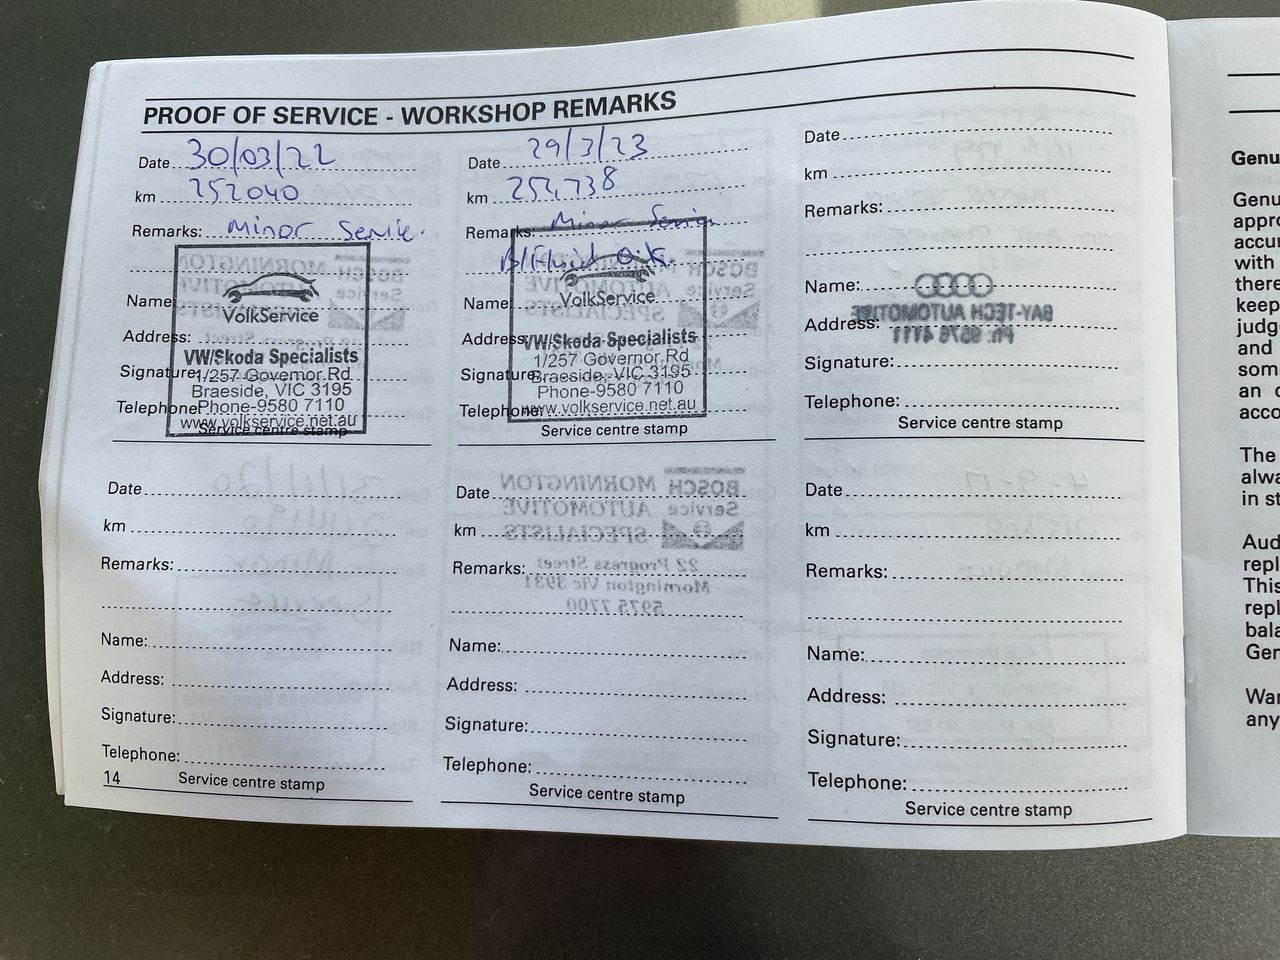 PROOF OF SERVICE - WORKSHOP REMARKS
Date 30/03/22
km 252040
Remarks: Minor Service.
Name
VolkService
Address:
VW/Skoda Specialists
Signature: 1/257 Governor Rd
Braeside, VIC 3195
Telephone: Phone-9580 7110
www.volkservice.net.au
Service centre stamp
Date 29/3/23
km 254,738
Remarks: Minor Service
B/Fluid O.K.
Name:
VolkService
Address: VW/Skoda Specialists
1/257 Governor Rd
Signature: Braeside, VIC 3195
Phone-9580 7110
Telephone: www.volkservice.net.au
Service centre stamp
Date
km
Remarks:
Name:
Address:
Signature:
Telephone:
Service centre stamp
Date
km
Remarks:
Name:
Address:
Signature:
Telephone:
14 Service centre stamp
Date
km
Remarks:
Name:
Address:
Signature:
Telephone:
Service centre stamp
Date
km
Remarks:
Name:
Address:
Signature:
Telephone:
Service centre stamp
Genu
Genu
appro
accu
with
there
keep
judg
and
som
an c
acco
The
alwa
in st
Aud
repl
This
repl
bala
Gen
War
any